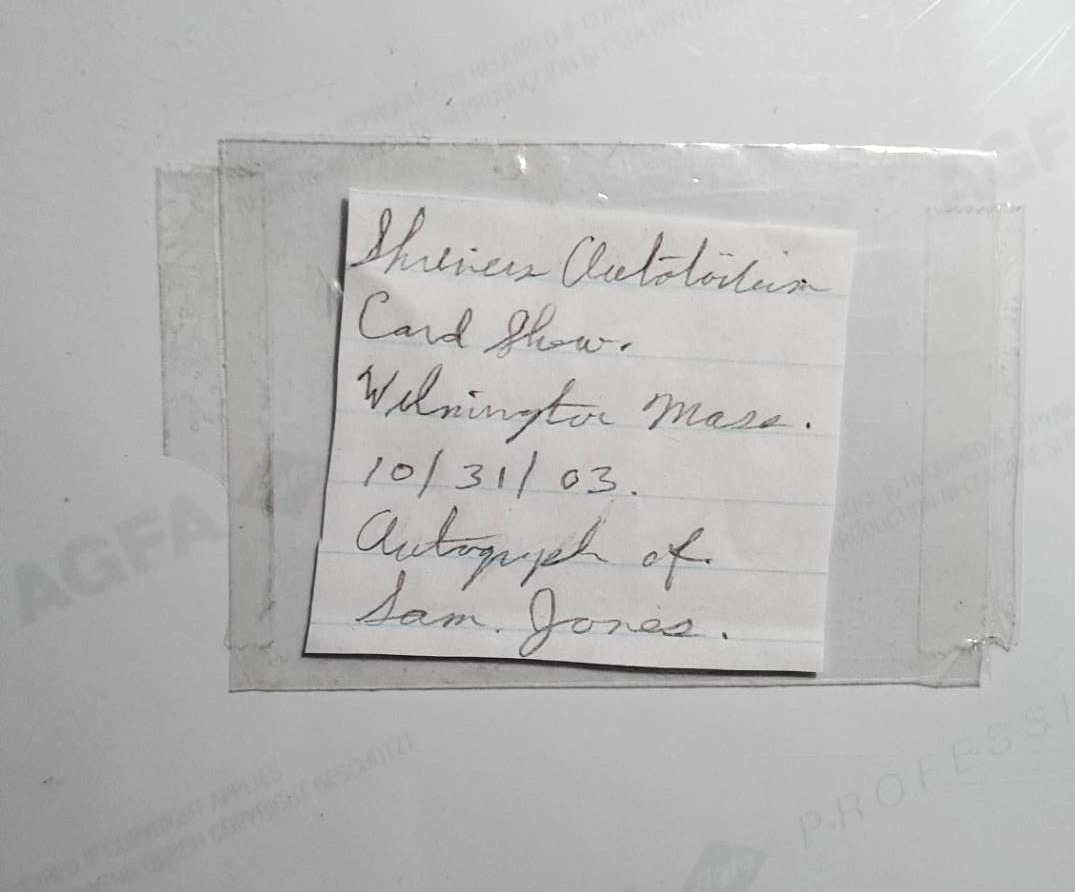 Shriners Auditorium
Card Show.
Wilmington Mass.
10/31/03.
Autograph of.
Sam. Jones.
AGFA
AGFA
PROFESSI